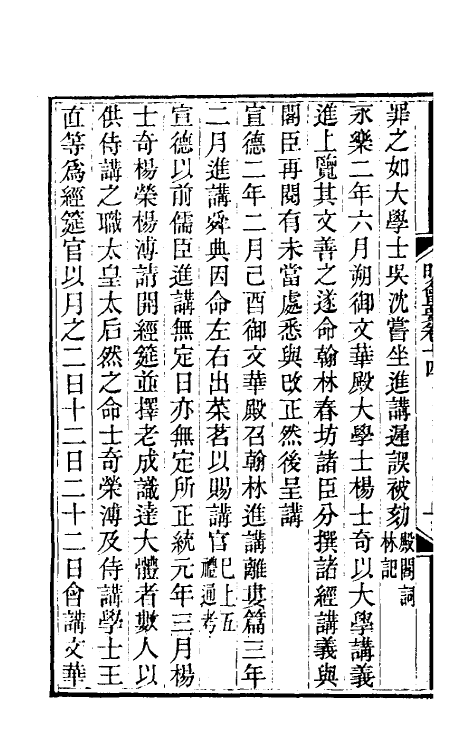 罪之如大學士吳沈嘗坐進講遲誤被劾殿閣詞林記
永樂二年六月朔御文華殿大學士楊士奇以大學講義
進上覽其文善之遂命翰林春坊諸臣分撰諸經講義與
閣臣再閱有未當處悉與改正然後呈講
宣德二年二月己酉御文華殿召翰林進講離婁篇三年
二月進講舜典因命左右出茶茗以賜講官已上五禮通考
宣德以前儒臣進講無定日亦無定所正統元年三月楊
士奇楊榮楊溥請開經筵並擇老成識達大體者數人以
供侍講之職太皇太后然之命士奇榮溥及侍講學士王
直等爲經筵官以月之二日十二日二十二日會講文華
卷十四